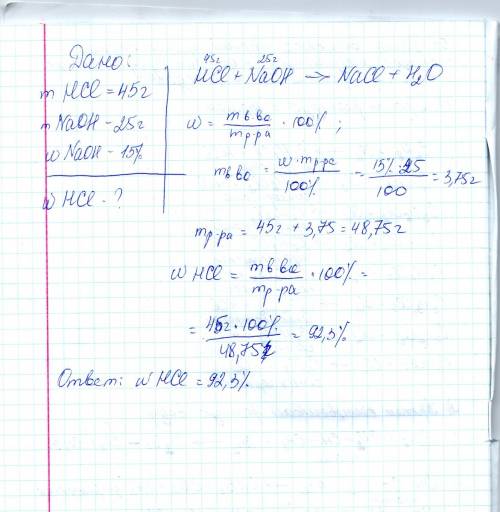 Дано:
m HCl = 45г
m NaOH - 25г
w NaOH - 15%
w HCl - ?
45г 25г
HCl + NaOH → NaCl + H₂O
w = mв.во / mр-ра · 100% ;
mв во = w · mр-ра / 100% = 15% · 25 / 100 = 3,75г
mр-ра = 45г + 3,75 = 48,75г
w HCl = mв во / mр-ра · 100% =
= 45г · 100% / 48,75г = 92,3%
Ответ: w HCl = 92,3%